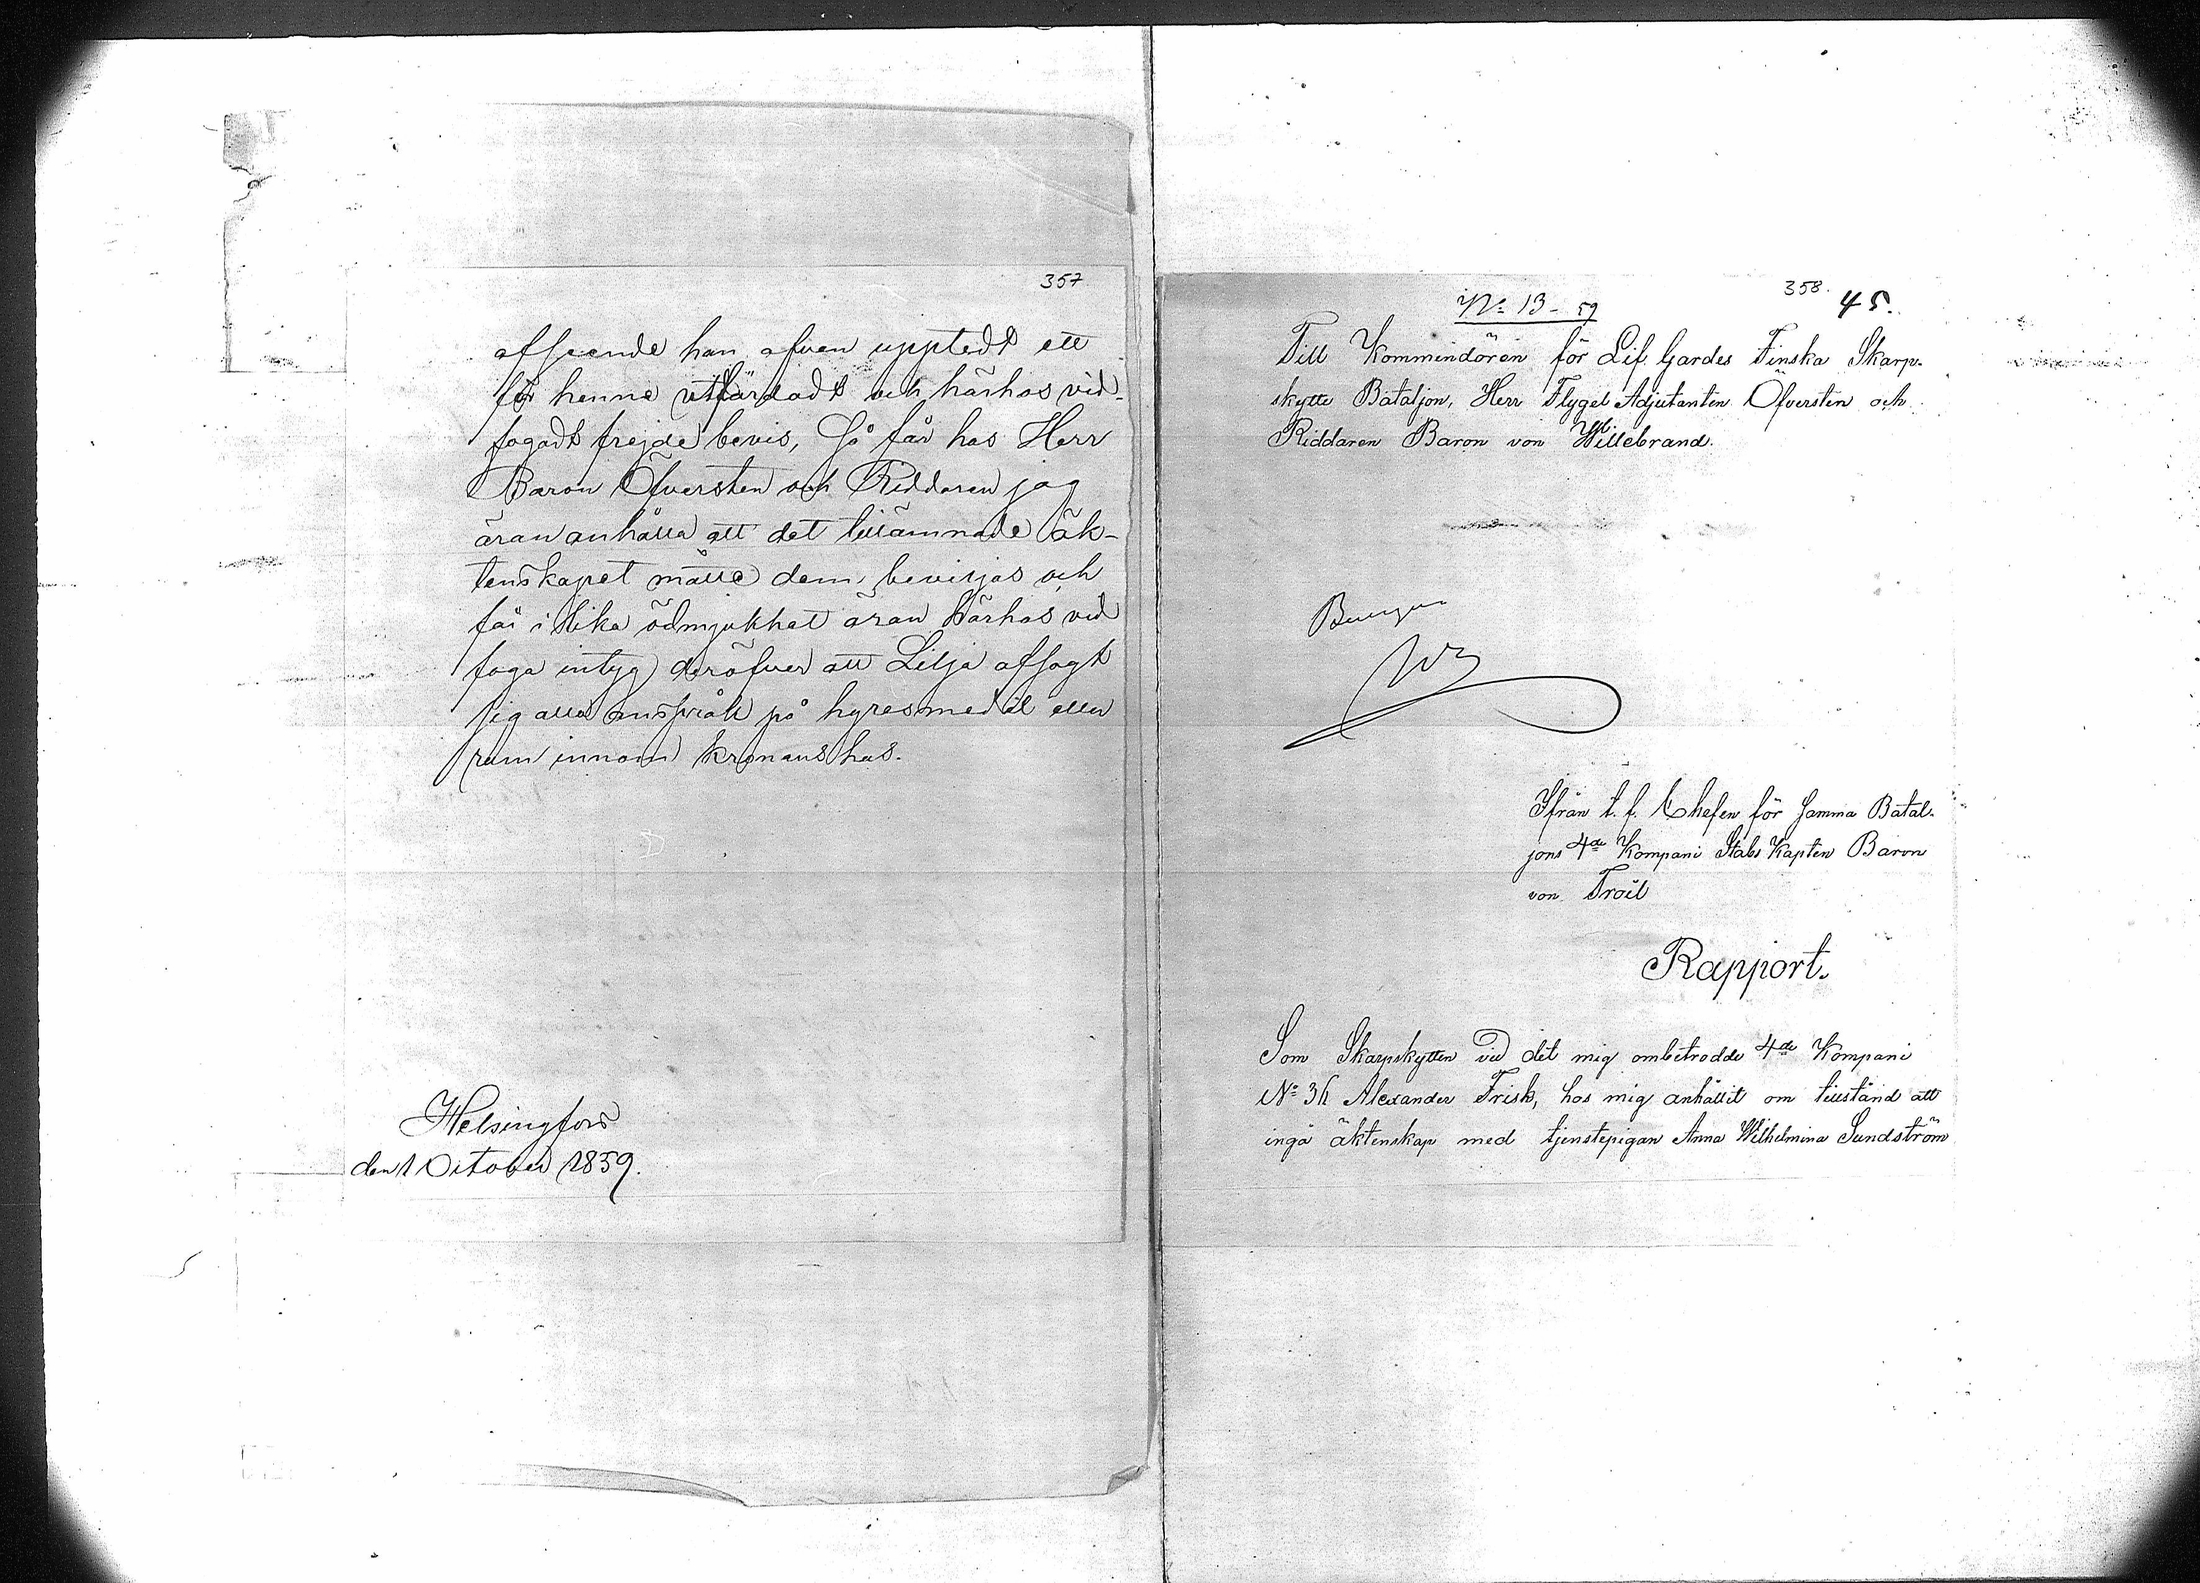 357
afseende han äfven upptedt ett
för henne utfärdadt och härhos vid-
fogadt frejdebevis, Så får hos Herr
Baron Öfversten och Riddaren jag
äran anhålla att det tillämnade äk-
tenskapet måtte dem bevisjas och
får i lika ödmjukhet äran härhos vid
foga intyg deröfver att Lilja afsagt
sig alla anspråk på hyresmedel eller
rum innom kronans hus.
Helsingfors
den 1 October 1859.
358. 45.
No 13-59
Till Kommendören för Lif Gardes Finska Skarp-
skytte Bataljon, Herr Flygel Adjutanten Öfversten och
Riddaren Baron von Willebrand.
Ifrån t. f. Chefen för samma Batal-
jons 4de Kompani Stabs Kapten Baron
von Troil
Rapport.
Som Skarpskytten vid det mig ombetrodde 4de Kompani
No 36 Alexander Frisk, hos mig anhållit om tillstånd att
ingå äktenskap med tjenstepigan Anna Wilhelmina Sundström